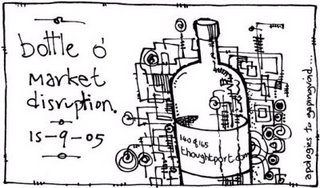 bottle o'
market
disruption.
15-9-05
thoughtport.com
apologies to gapingvoid....